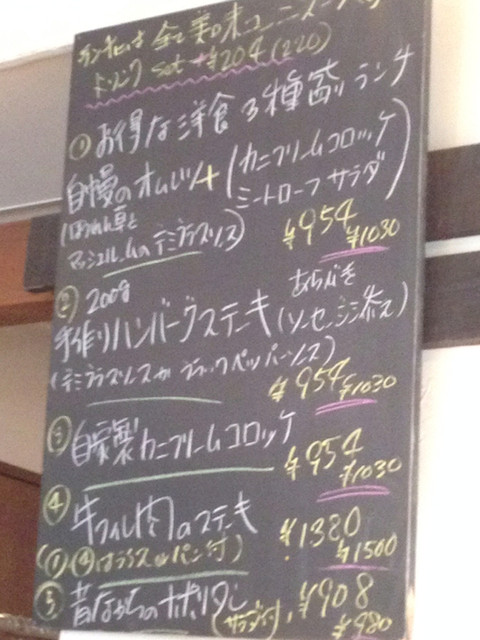 ランチには全て美味コーンスープ
ドリンクset +¥204(220)
① お得な洋食3種盛りランチ
自慢のオムレツ+(カニクリームコロッケ
ミートローフ サラダ)
(ほうれん草と
マッシュルームのデミグラスソース)
¥954
¥1030
② 200g
あらびき
手作りハンバーグステーキ(ソーセージ添え)
(デミグラスソースか ブラックペッパーソース)
¥954 ¥1030
③ 自家製カニクリームコロッケ
¥954
¥1030
④ 牛フィレ肉のステーキ
¥1380
(①〜④はライスorパン付)
¥1500
⑤ 昔ながらのナポリタン
(サラダ付) ¥908
¥980